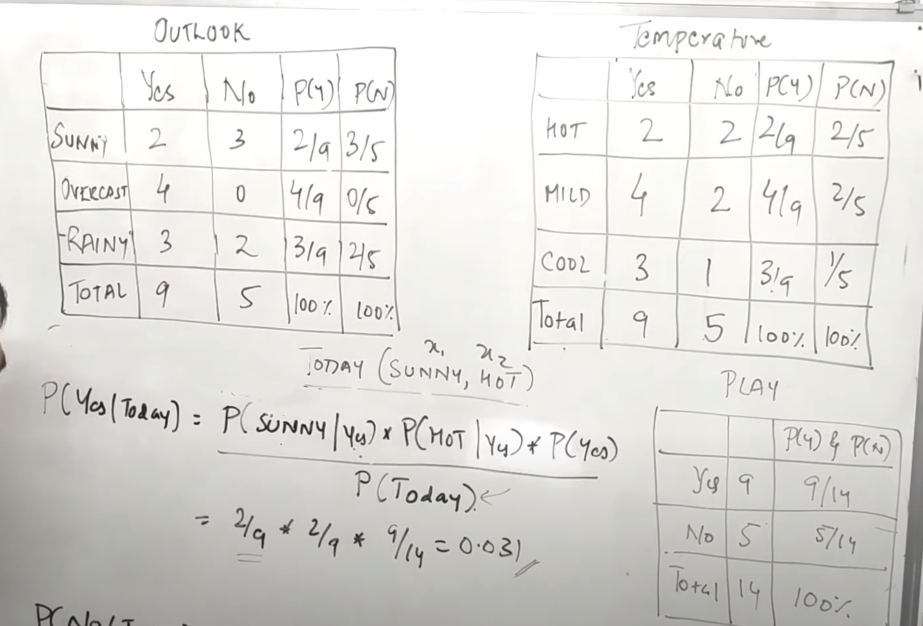 OUTLOOK
Yes No P(Y) P(N)
SUNNY 2 3 2/9 3/5
OVERCAST 4 0 4/9 0/5
RAINY 3 2 3/9 2/5
TOTAL 9 5 100% 100%
Temperature
Yes No P(Y) P(N)
HOT 2 2 2/9 2/5
MILD 4 2 4/9 2/5
COOL 3 1 3/9 1/5
Total 9 5 100% 100%
x₁ x₂
TODAY (SUNNY, HOT)
P(Yes|Today) = P(SUNNY|Yes) * P(HOT|Yes) * P(Yes)
P(Today)
= 2/9 * 2/9 * 9/14 = 0.031
PLAY
P(Y) & P(N)
Yes 9 9/14
No 5 5/14
Total 14 100%